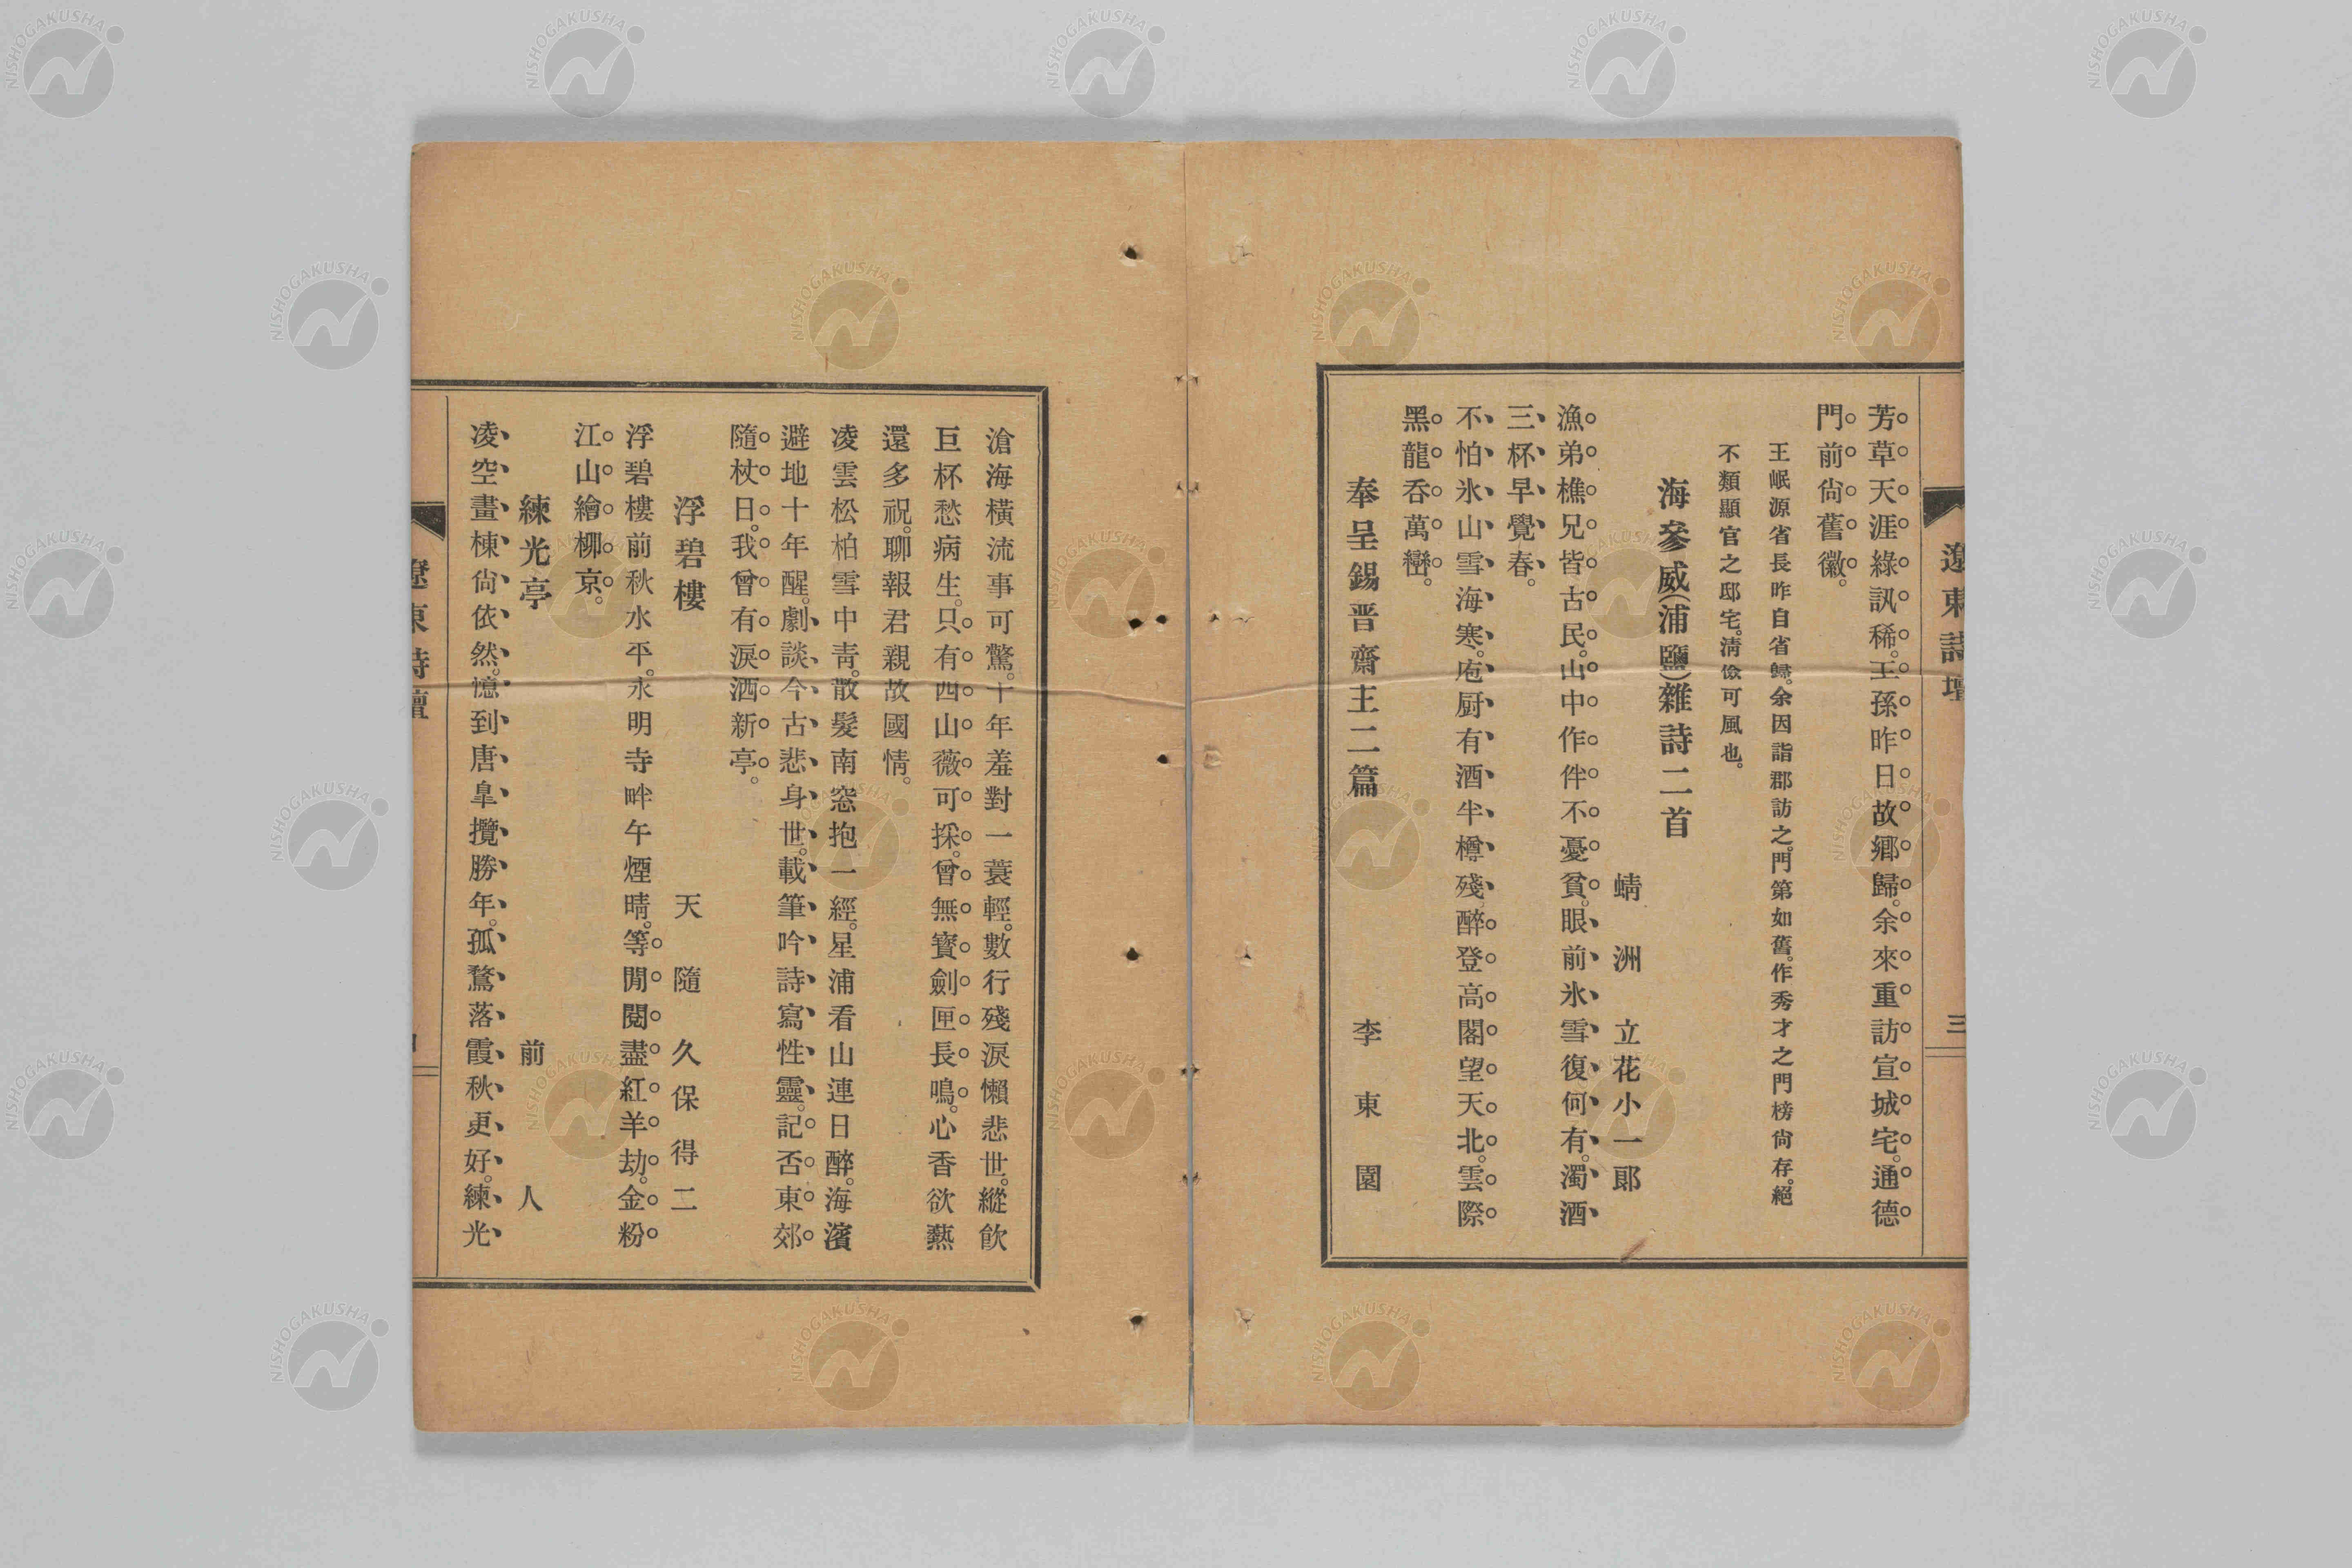 遼東詩壇
三
芳草天涯綠訊稀。王孫昨日故鄉歸。余來重訪宣城宅。通德
門前尙舊徽。
王岷源省長昨自省歸。余因詣郡訪之。門第如舊。作秀才之門榜尙存。絕
不類顯官之邸宅。淸儉可風也。
海參威(浦鹽)雜詩二首
蜻洲 立花小一郞
漁弟樵兄皆古民。山中作伴不憂貧。眼前氷雪復何有。濁酒
三杯早覺春。
不怕氷山雪海寒。庖厨有酒半樽殘。醉登高閣望天北。雲際
黑龍呑萬巒。
奉呈錫晋齋主二篇
李東園
滄海橫流事可驚。十年羞對一蓑輕。數行殘淚懶悲世。縱飮
巨杯愁病生。只有西山薇可採。曾無寳劍匣長鳴。心香欲爇
還多祝。聊報君親故國情。
凌雲松柏雪中靑。散髮南窓抱一經。星浦看山連日醉。海濱
避地十年醒。劇談今古悲身世。載筆吟詩寫性靈。記否東郊
隨杖日。我曾有淚洒新亭。
浮碧樓
天隨 久保得二
浮碧樓前秋水平。永明寺畔午煙晴。等閒閱盡紅羊劫。金粉
江山繪柳京。
練光亭
前人
凌空畫棟尙依然。憶到唐臯攬勝年。孤鶩落霞秋更好。練光
遼東詩壇
NISHOGAKUSHA